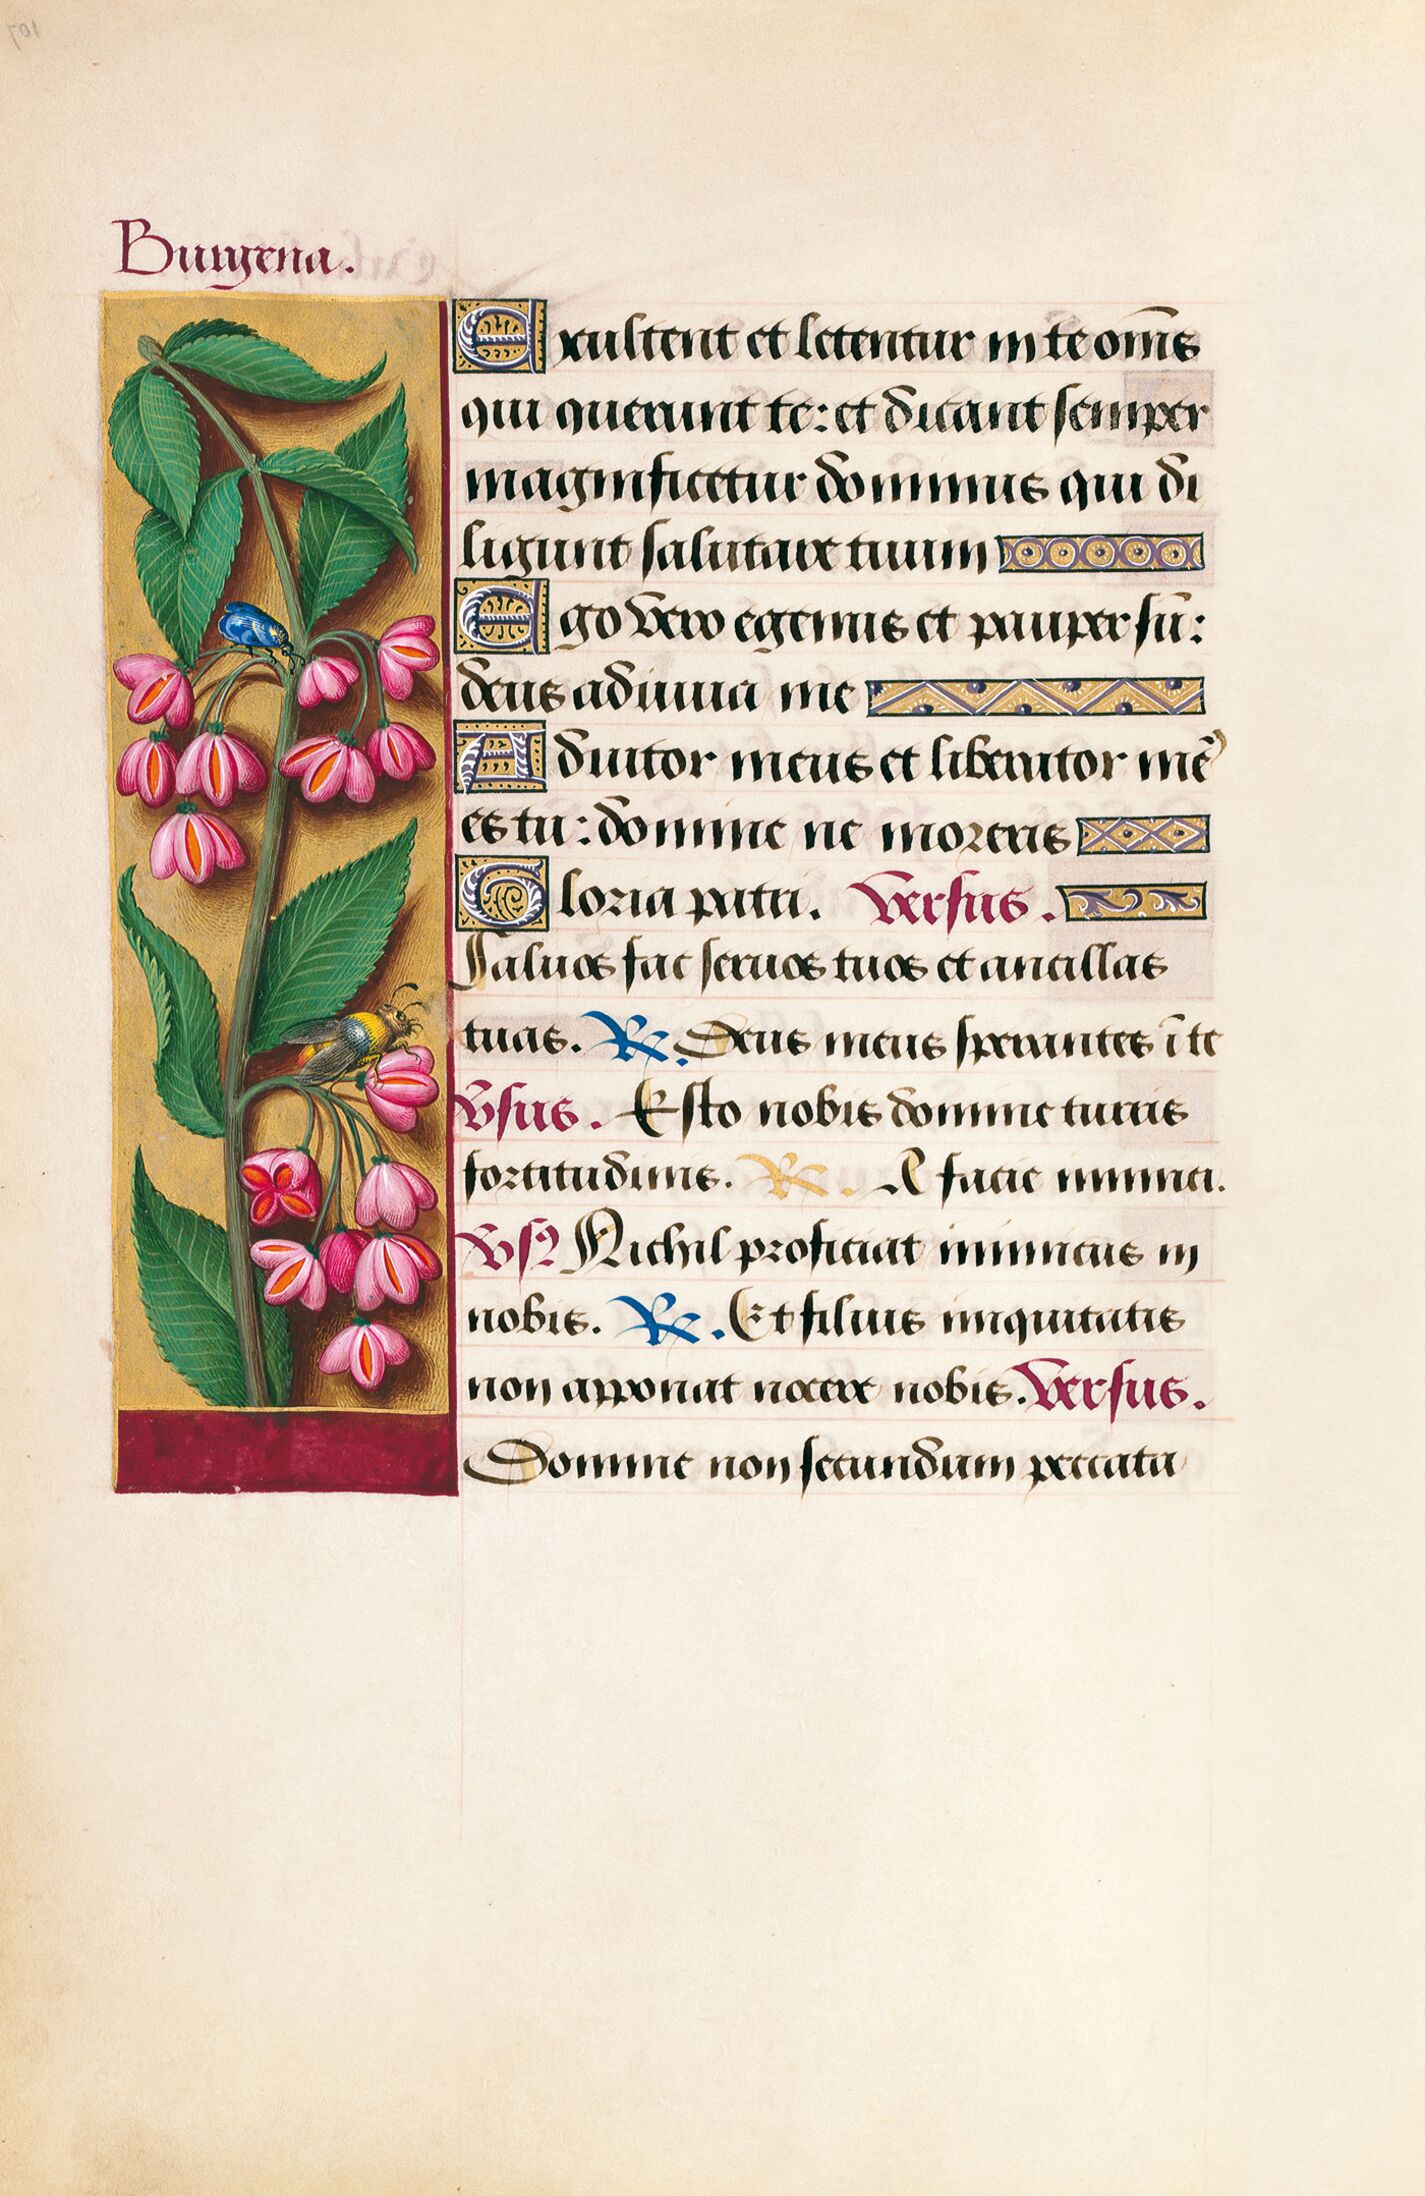 Burgena.
Exultent et letentur in te om̄s
qui querunt te: et dicant semper
magnificetur dominus qui di
ligunt salutare tuum
Ego vero egenus et pauper sū:
deus adiuua me
Adiutor meus et liberator me᷒
es tu: domine ne moreris
Gloria patri. Versus.
Saluos fac seruos tuos et ancillas
tuas. ℟. Deus meus sperantes ī te
Vsus. Esto nobis domine turris
fortitudinis. ℟. A facie inimici.
Vsꝰ Nichil proficiat inimicus in
nobis. ℟. Et filius iniquitatis
non apponat nocere nobis. Versus.
Domine non secundum peccata